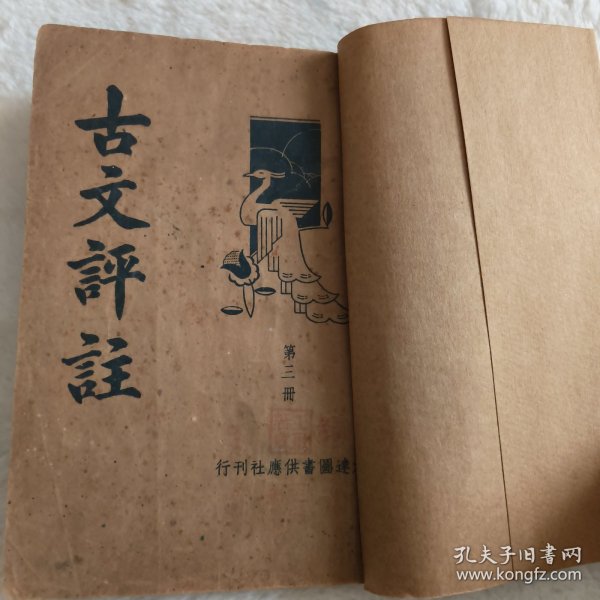 古文評註
第三冊
達圖書供應社刊行
孔夫子旧书网
www.kongfz.com